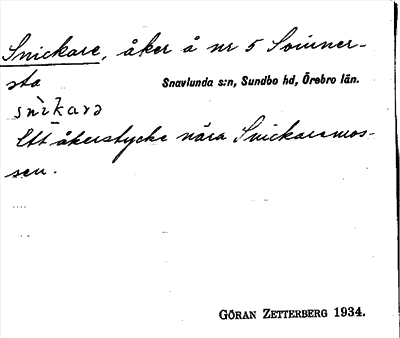 Snickare, åker å nr 5 Svinner-
sta Snavlunda s:n, Sundbo hd, Örebro län.
snìkarə
Ett åkerstycke nära Snickaremos-
sen.
GÖRAN ZETTERBERG 1934.